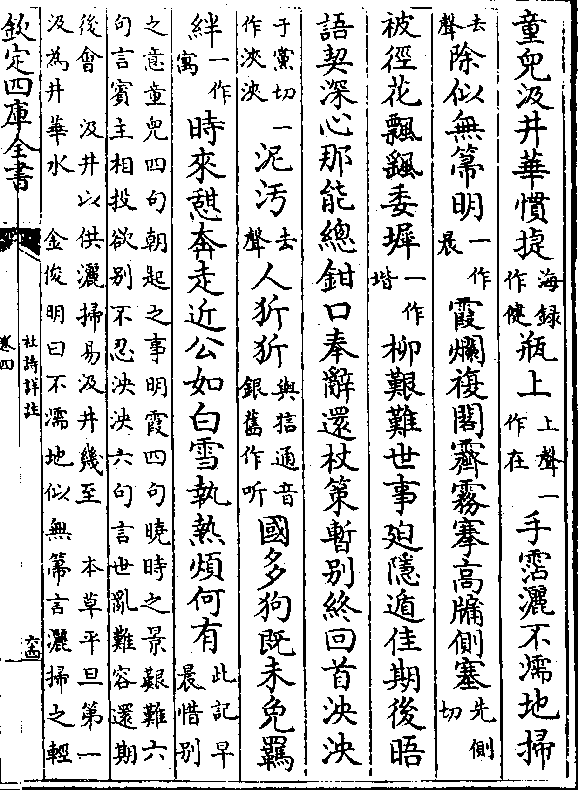 童兒汲井華慣捷海録作健瓶上上聲一作在手霑灑不濡地掃
去聲除似無箒明一作晨霞爛複閣霽霧搴高牖側塞先側切
被徑花飄颻委墀一作堦柳艱難世事廹隱遁佳期後晤
語契深心那能總鉗口奉辭還杖策暫别終回首泱泱
于黨切一作泱泱泥汚去聲人狋狋與狺通音銀舊作听國多狗既未免羈
絆一作寓時來憇奔走近公如白雪執熱煩何有此記早晨惜别
之意童兒四句朝起之事明霞四句曉時之景艱難六
句言賓主相投欲别不忍泱泱六句言世亂難容還期
後會 汲井以供灑掃易汲井幾至 本草平旦第一
汲為井華水 金俊明曰不濡地似無箒言灑掃之輕
欽定四庫全書
杜詩詳註
卷四